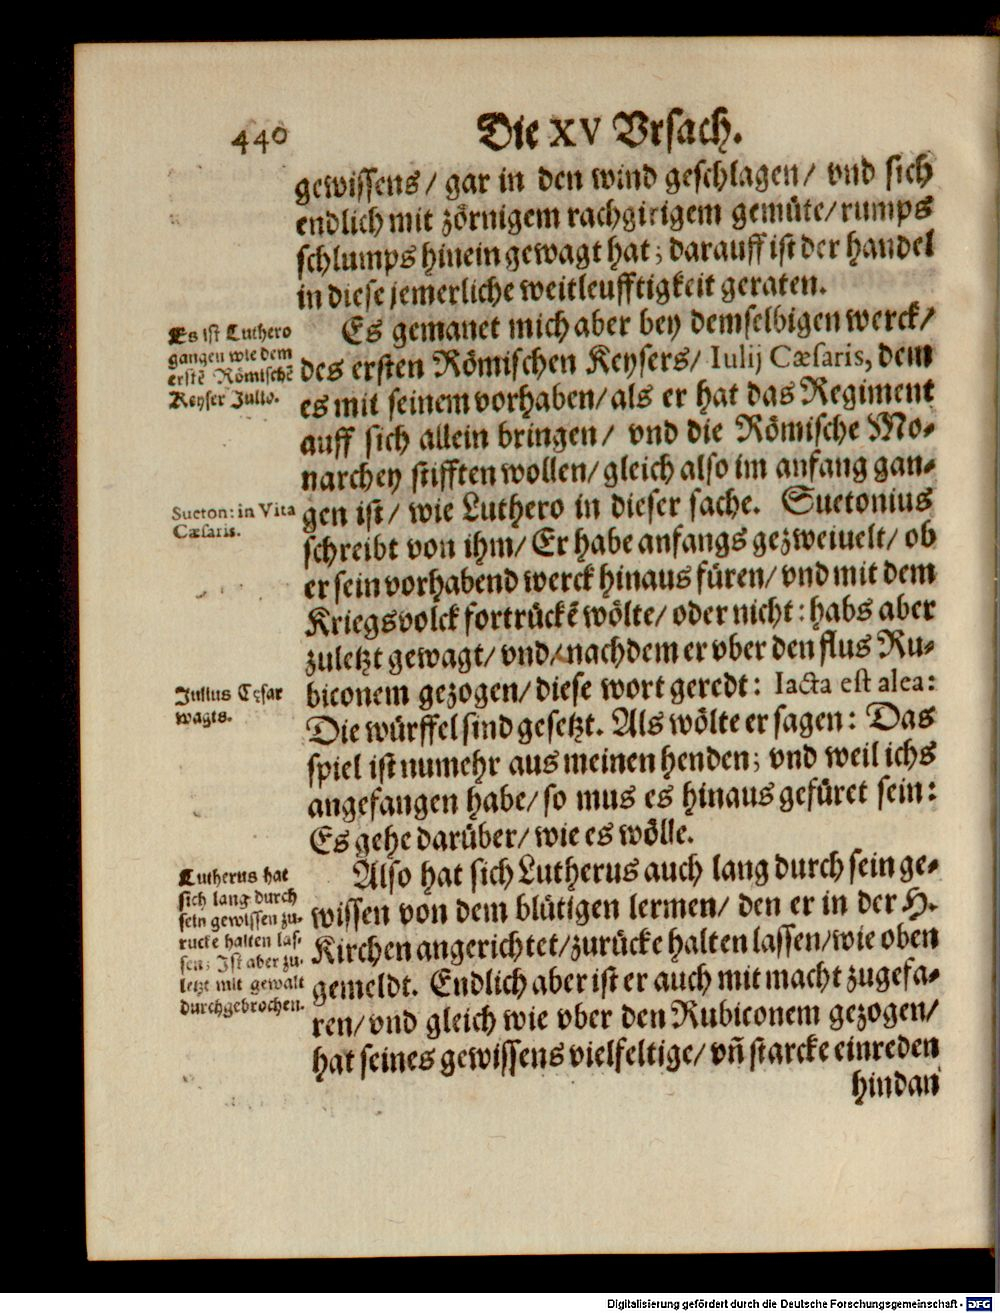 440
Die XV Vrsach.
gewissens/ gar in den wind geschlagen/ vnd sich
endlich mit zörnigem rachgirigem gemüte/ rumps
schlumps hinein gewagt hat; darauff ist der handel
in diese jemerliche weitleufftigkeit geraten.
Es ist Luthero
gangen wie dem
erstē Römischē
Keyser Julio.
Es gemanet mich aber bey demselbigen werck/
des ersten Römischen Keysers/ Iulij Cæsaris, dem
es mit seinem vorhaben/ als er hat das Regiment
auff sich allein bringen/ vnd die Römische Mo-
narchey stifften wollen/ gleich also im anfang gan-
Sueton: in Vita
Cæsaris.
gen ist/ wie Luthero in dieser sache. Suetonius
schreibt von ihm/ Er habe anfangs gezweiuelt/ ob
er sein vorhabend werck hinaus füren/ vnd mit dem
Kriegsvolck fortrückē wölte/ oder nicht: habs aber
zuletzt gewagt/ vnd/ nachdem er vber den flus Ru-
Julius Cęsar
wagts.
biconem gezogen/ diese wort geredt: Iacta est alea:
Die würffel sind gesetzt. Als wölte er sagen: Das
spiel ist numehr aus meinen henden; vnd weil ichs
angefangen habe/ so mus es hinaus gefüret sein:
Es gehe darüber/ wie es wölle.
Lutherus hat
sich lang durch
sein gewissen zu-
rucke halten las-
sen; Ist aber zu-
letzt mit gewalt
durchgebrochen.
Also hat sich Lutherus auch lang durch sein ge-
wissen von dem blütigen lermen/ den er in der H.
Kirchen angerichtet/ zurücke halten lassen/ wie oben
gemeldt. Endlich aber ist er auch mit macht zugefa-
ren/ vnd gleich wie vber den Rubiconem gezogen/
hat seines gewissens vielfeltige/ vn̄ starcke einreden
hindan
Digitalisierung gefördert durch die Deutsche Forschungsgemeinschaft - DFG